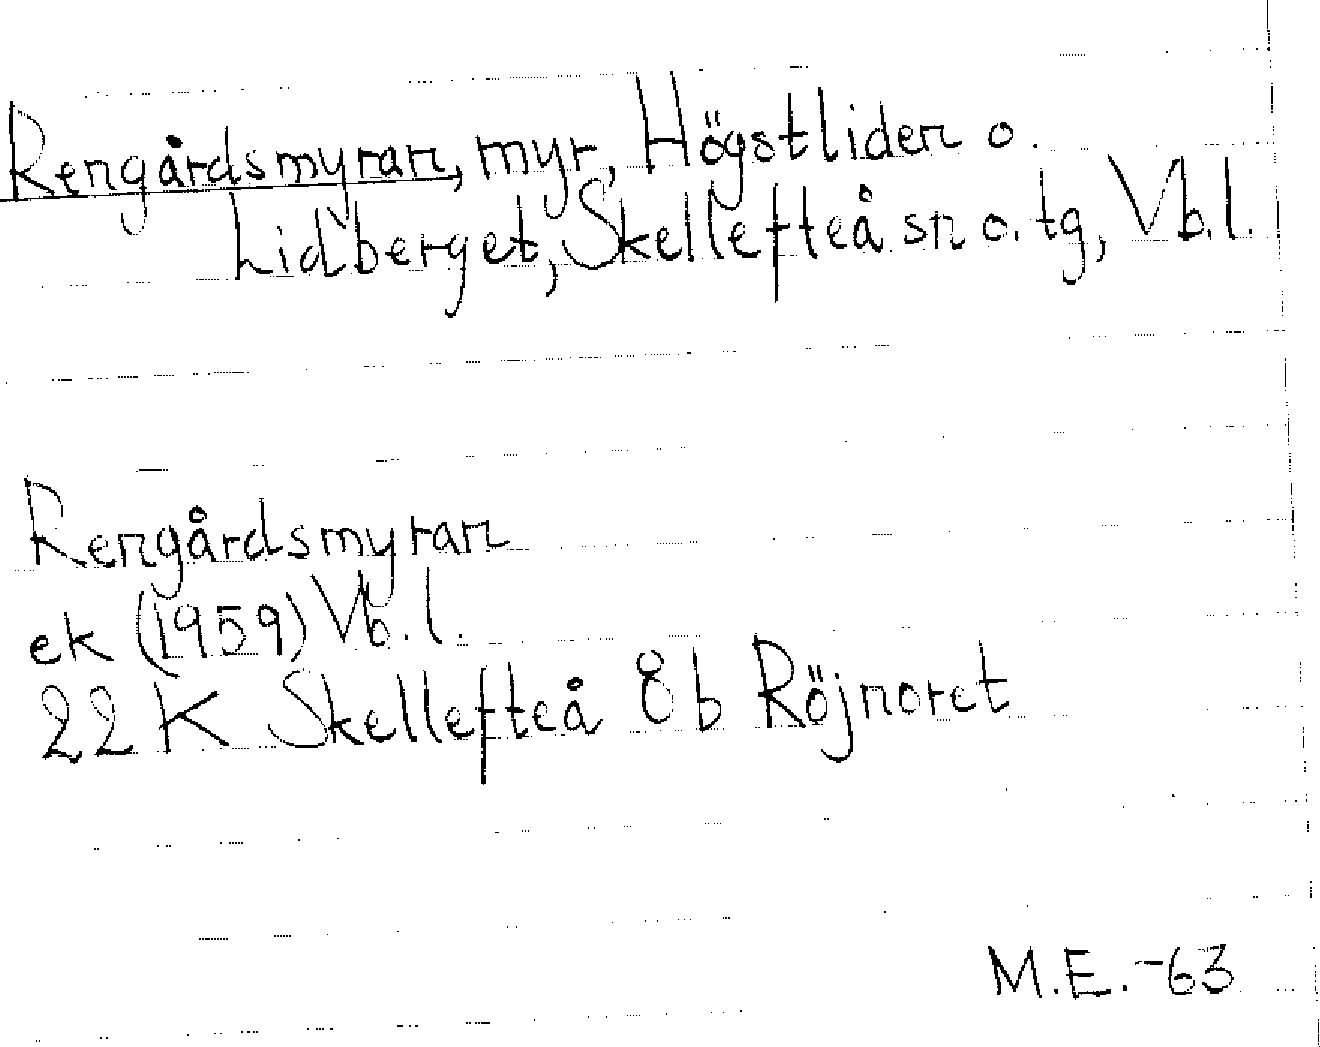 Rengårdsmyran, myr, Högstliden o.
Lidberget, Skellefteå sn o. tg, Vb.l.
Rengårdsmyran
ek (1959) Vb.l.
22 K Skellefteå 8 b Röjnoret
M.E.-63